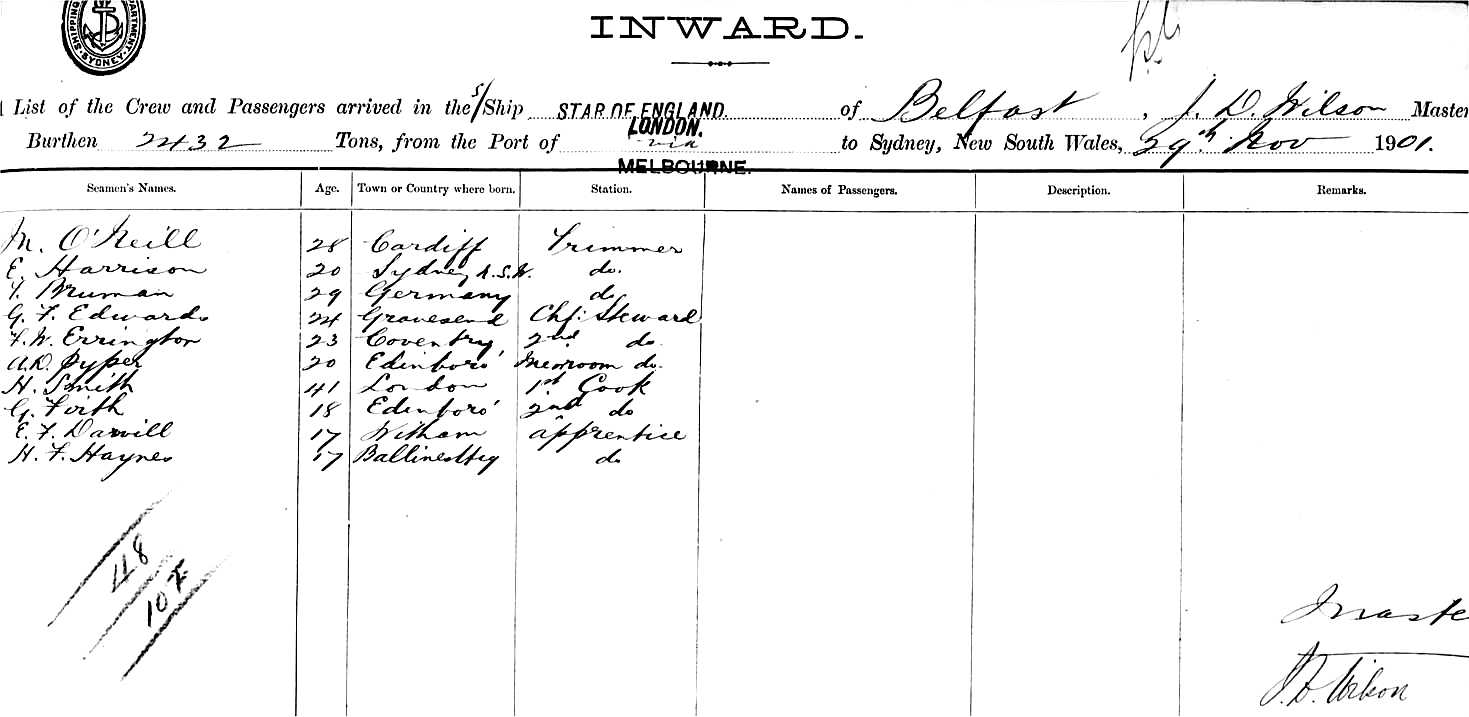 SHIPPING DEPARTMENT. SYDNEY.
INWARD.
List of the Crew and Passengers arrived in the S/Ship STAR OF ENGLAND. of Belfast, J. D. Wilson Master
Burthen 2432 Tons, from the Port of LONDON. via MELBOURNE. to Sydney, New South Wales, 29th Nov 1901.
Seamen's Names. Age. Town or Country where born. Station. Names of Passengers. Description. Remarks.
M. O'Neill 28 Cardiff Trimmer
E. Harrison 20 Sydney N.S.W. do.
F. Bruman 29 Germany do
G. F. Edwards 24 Gravesend Chf. Steward
F. W. Errington 23 Coventry 2nd do.
A. D. Pyper 20 Edinboro' Messroom do.
H. Smith 41 London 1st Cook
G. Firth 18 Edinboro' 2nd do
E. F. Darvill 17 Witham apprentice
H. F. Haynes 17 do
118
10
Maste
J. D. Wilson